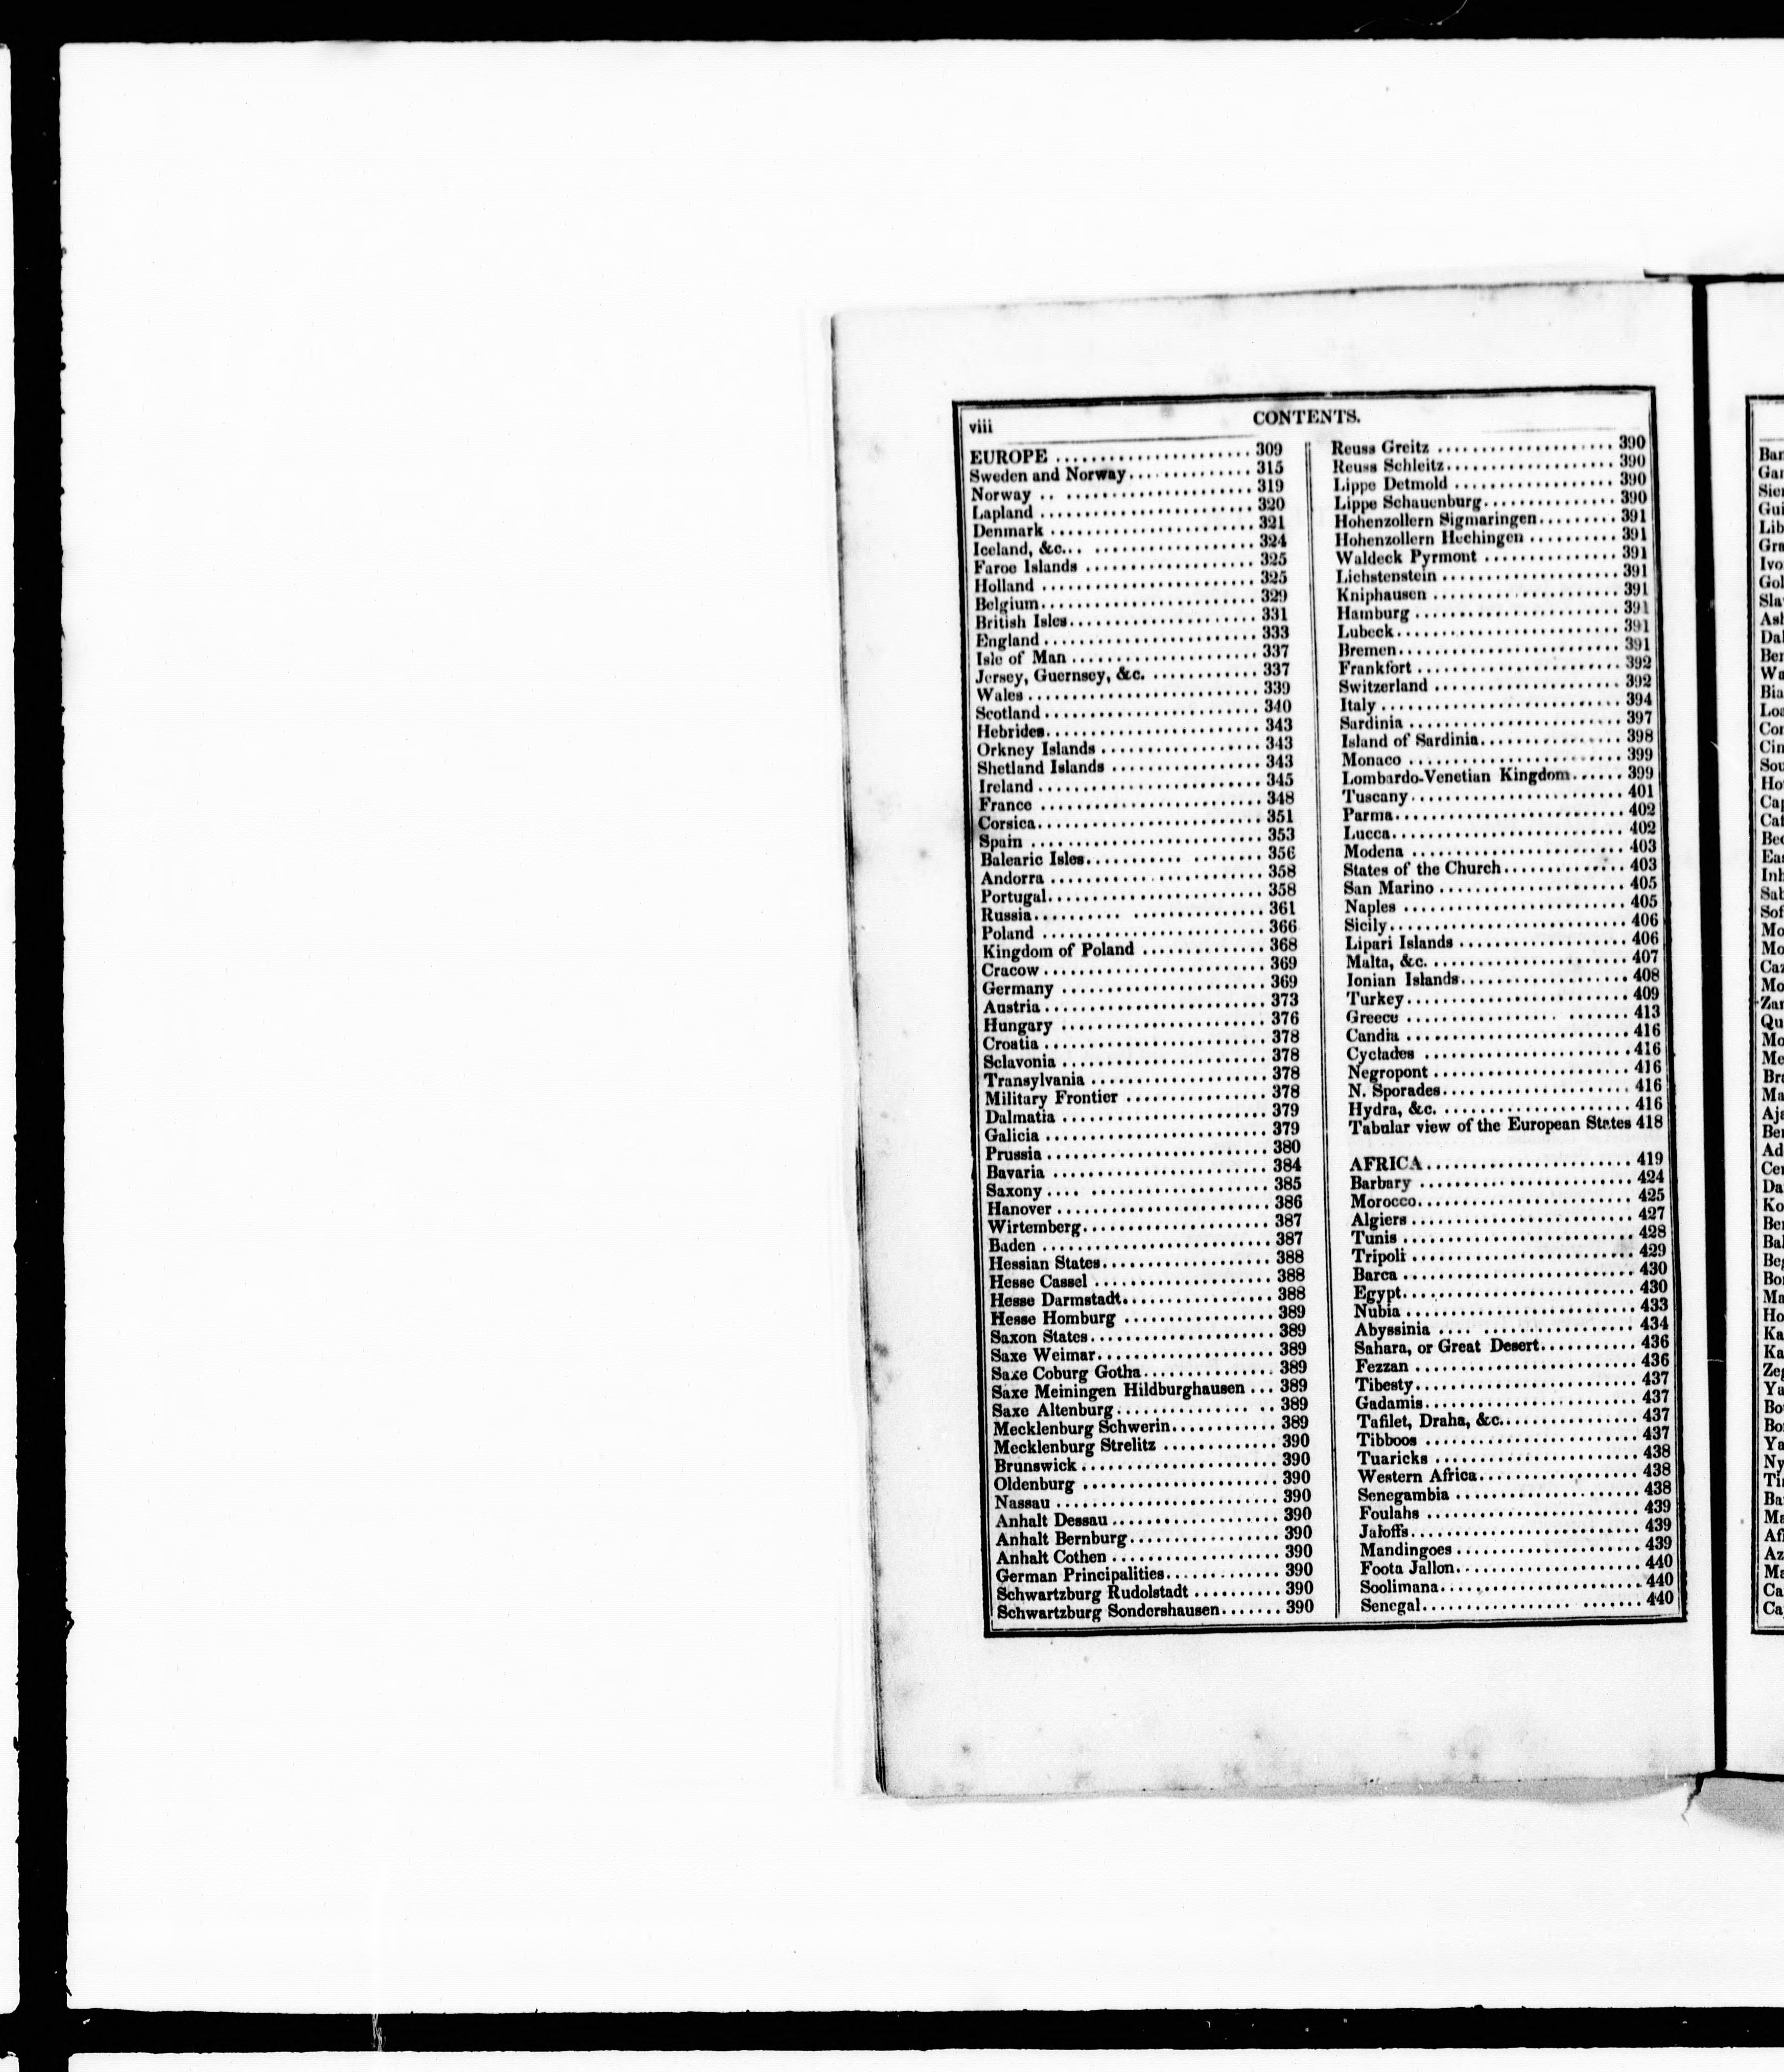 viii
CONTENTS.
EUROPE ...................... 309
Sweden and Norway.............. 315
Norway .. ..................... 319
Lapland ........................ 320
Denmark ....................... 321
Iceland, &c... .................. 324
Faroe Islands ................... 325
Holland ........................ 325
Belgium........................ 329
British Isles..................... 331
England ........................ 333
Isle of Man ..................... 337
Jersey, Guernsey, &c. ............ 337
Wales .......................... 339
Scotland ........................ 340
Hebrides........................ 343
Orkney Islands .................. 343
Shetland Islands ................. 343
Ireland ......................... 345
France ......................... 348
Corsica......................... 351
Spain .......................... 353
Balearic Isles........... ........ 356
Andorra ........................ 358
Portugal........................ 358
Russia.......... ............... 361
Poland ......................... 366
Kingdom of Poland .............. 368
Cracow ......................... 369
Germany ....................... 369
Austria ......................... 373
Hungary ....................... 376
Croatia ......................... 378
Sclavonia ....................... 378
Transylvania .................... 378
Military Frontier ................ 378
Dalmatia ....................... 379
Galicia ......................... 379
Prussia ......................... 380
Bavaria ........................ 384
Saxony .... .................... 385
Hanover ........................ 386
Wirtemberg..................... 387
Baden .......................... 387
Hessian States................... 388
Hesse Cassel .................... 388
Hesse Darmstadt................. 388
Hesse Homburg ................. 389
Saxon States..................... 389
Saxe Weimar.................... 389
Saxe Coburg Gotha............... 389
Saxe Meiningen Hildburghausen ... 389
Saxe Altenburg............... .. 389
Mecklenburg Schwerin............ 389
Mecklenburg Strelitz ............. 390
Brunswick ...................... 390
Oldenburg ...................... 390
Nassau ......................... 390
Anhalt Dessau ................... 390
Anhalt Bernburg................. 390
Anhalt Cothen ................... 390
German Principalities............. 390
Schwartzburg Rudolstadt .......... 390
Schwartzburg Sondershausen....... 390
Reuss Greitz .................... 390
Reuss Schleitz................... 390
Lippe Detmold .................. 390
Lippe Schauenburg............... 390
Hohenzollern Sigmaringen......... 391
Hohenzollern Hechingen .......... 391
Waldeck Pyrmont ............... 391
Lichstenstein .................... 391
Kniphausen ..................... 391
Hamburg ....................... 391
Lubeck......................... 391
Bremen......................... 391
Frankfort ....................... 392
Switzerland ..................... 392
Italy ........................... 394
Sardinia ........................ 397
Island of Sardinia................ 398
Monaco ........................ 399
Lombardo-Venetian Kingdom...... 399
Tuscany........................ 401
Parma.......................... 402
Lucca.......................... 402
Modena ........................ 403
States of the Church.............. 403
San Marino ..................... 405
Naples ......................... 405
Sicily........................... 406
Lipari Islands ................... 406
Malta, &c. ...................... 407
Ionian Islands................... 408
Turkey......................... 409
Greece ................. ....... 413
Candia ......................... 416
Cyclades ....................... 416
Negropont ...................... 416
N. Sporades..................... 416
Hydra, &c. ..................... 416
Tabular view of the European States 418
AFRICA....................... 419
Barbary ........................ 424
Morocco........................ 425
Algiers ......................... 427
Tunis .......................... 428
Tripoli ......................... 429
Barca .......................... 430
Egypt.......................... 430
Nubia .......................... 433
Abyssinia .... ................. 434
Sahara, or Great Desert........... 436
Fezzan ......................... 436
Tibesty......................... 437
Gadamis........................ 437
Tafilet, Draha, &c................ 437
Tibboos ........................ 437
Tuaricks ....................... 438
Western Africa.................. 438
Senegambia ..................... 438
Foulahs ........................ 439
Jaloffs.......................... 439
Mandingoes ..................... 439
Foota Jallon..................... 440
Soolimana....................... 440
Senegal................. ....... 440